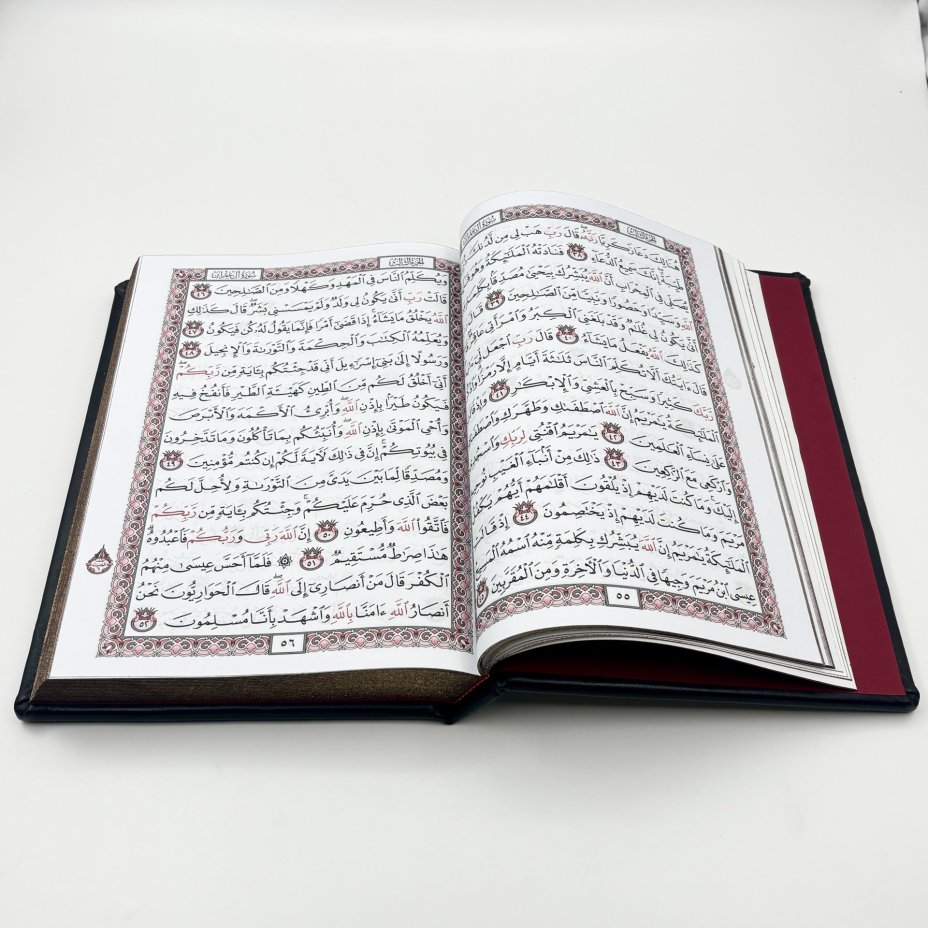 الجزء الثالث سورة آل عمران
هُنَالِكَ دَعَا زَكَرِيَّا رَبَّهُۥ قَالَ رَبِّ هَبْ لِى مِن لَّدُنكَ
طَيِّبَةً إِنَّكَ سَمِيعُ ٱلدُّعَآءِ ٣٨ فَنَادَتْهُ ٱلْمَلَٰٓئِكَةُ وَهُوَ
يُصَلِّى فِى ٱلْمِحْرَابِ أَنَّ ٱللَّهَ يُبَشِّرُكَ بِيَحْيَىٰ مُصَدِّقًۢا بِكَلِمَةٍ
ٱللَّهِ وَسَيِّدًا وَحَصُورًا وَنَبِيًّا مِّنَ ٱلصَّٰلِحِينَ ٣٩
أَنَّىٰ يَكُونُ لِى غُلَٰمٌ وَقَدْ بَلَغَنِىَ ٱلْكِبَرُ وَٱمْرَأَتِى عَاقِرٌ
كَذَٰلِكَ ٱللَّهُ يَفْعَلُ مَا يَشَآءُ ٤٠ قَالَ رَبِّ ٱجْعَل لِّىٓ
قَالَ ءَايَتُكَ أَلَّا تُكَلِّمَ ٱلنَّاسَ ثَلَٰثَةَ أَيَّامٍ إِلَّا رَمْزًا
رَّبَّكَ كَثِيرًا وَسَبِّحْ بِٱلْعَشِىِّ وَٱلْإِبْكَٰرِ ٤١ وَإِذْ
ٱلْمَلَٰٓئِكَةُ يَٰمَرْيَمُ إِنَّ ٱللَّهَ ٱصْطَفَىٰكِ وَطَهَّرَكِ وَٱصْطَفَىٰكِ
عَلَىٰ نِسَآءِ ٱلْعَٰلَمِينَ ٤٢ يَٰمَرْيَمُ ٱقْنُتِى لِرَبِّكِ وَٱسْجُدِى
وَٱرْكَعِى مَعَ ٱلرَّٰكِعِينَ ٤٣ ذَٰلِكَ مِنْ أَنۢبَآءِ ٱلْغَيْبِ نُوحِيهِ
إِلَيْكَ وَمَا كُنتَ لَدَيْهِمْ إِذْ يُلْقُونَ أَقْلَٰمَهُمْ أَيُّهُمْ يَكْفُلُ
مَرْيَمَ وَمَا كُنتَ لَدَيْهِمْ إِذْ يَخْتَصِمُونَ ٤٤ إِذْ قَالَتِ
ٱلْمَلَٰٓئِكَةُ يَٰمَرْيَمُ إِنَّ ٱللَّهَ يُبَشِّرُكِ بِكَلِمَةٍ مِّنْهُ ٱسْمُهُ ٱلْمَسِيحُ
عِيسَى ٱبْنُ مَرْيَمَ وَجِيهًا فِى ٱلدُّنْيَا وَٱلْءَاخِرَةِ وَمِنَ ٱلْمُقَرَّبِينَ ٤٥
٥٥
الجزء الثالث سورة آل عمران
وَيُكَلِّمُ ٱلنَّاسَ فِى ٱلْمَهْدِ وَكَهْلًا وَمِنَ ٱلصَّٰلِحِينَ ٤٦
قَالَتْ رَبِّ أَنَّىٰ يَكُونُ لِى وَلَدٌ وَلَمْ يَمْسَسْنِى بَشَرٌ قَالَ كَذَٰلِكِ
ٱللَّهُ يَخْلُقُ مَا يَشَآءُ إِذَا قَضَىٰٓ أَمْرًا فَإِنَّمَا يَقُولُ لَهُۥ كُن فَيَكُونُ ٤٧
وَيُعَلِّمُهُ ٱلْكِتَٰبَ وَٱلْحِكْمَةَ وَٱلتَّوْرَىٰةَ وَٱلْإِنجِيلَ ٤٨
وَرَسُولًا إِلَىٰ بَنِىٓ إِسْرَٰٓءِيلَ أَنِّى قَدْ جِئْتُكُم بِـَٔايَةٍ مِّن رَّبِّكُمْ
أَنِّىٓ أَخْلُقُ لَكُم مِّنَ ٱلطِّينِ كَهَيْـَٔةِ ٱلطَّيْرِ فَأَنفُخُ فِيهِ
فَيَكُونُ طَيْرًۢا بِإِذْنِ ٱللَّهِ وَأُبْرِئُ ٱلْأَكْمَهَ وَٱلْأَبْرَصَ
وَأُحْىِ ٱلْمَوْتَىٰ بِإِذْنِ ٱللَّهِ وَأُنَبِّئُكُم بِمَا تَأْكُلُونَ وَمَا تَدَّخِرُونَ
فِى بُيُوتِكُمْ إِنَّ فِى ذَٰلِكَ لَءَايَةً لَّكُمْ إِن كُنتُم مُّؤْمِنِينَ ٤٩
وَمُصَدِّقًا لِّمَا بَيْنَ يَدَىَّ مِنَ ٱلتَّوْرَىٰةِ وَلِأُحِلَّ لَكُم
بَعْضَ ٱلَّذِى حُرِّمَ عَلَيْكُمْ وَجِئْتُكُم بِـَٔايَةٍ مِّن رَّبِّكُمْ
فَٱتَّقُوا۟ ٱللَّهَ وَأَطِيعُونِ ٥٠ إِنَّ ٱللَّهَ رَبِّى وَرَبُّكُمْ فَٱعْبُدُوهُ
هَٰذَا صِرَٰطٌ مُّسْتَقِيمٌ ٥١ ۞ فَلَمَّآ أَحَسَّ عِيسَىٰ مِنْهُمُ
ٱلْكُفْرَ قَالَ مَنْ أَنصَارِىٓ إِلَى ٱللَّهِ قَالَ ٱلْحَوَارِيُّونَ نَحْنُ
أَنصَارُ ٱللَّهِ ءَامَنَّا بِٱللَّهِ وَٱشْهَدْ بِأَنَّا مُسْلِمُونَ ٥٢
٥٦